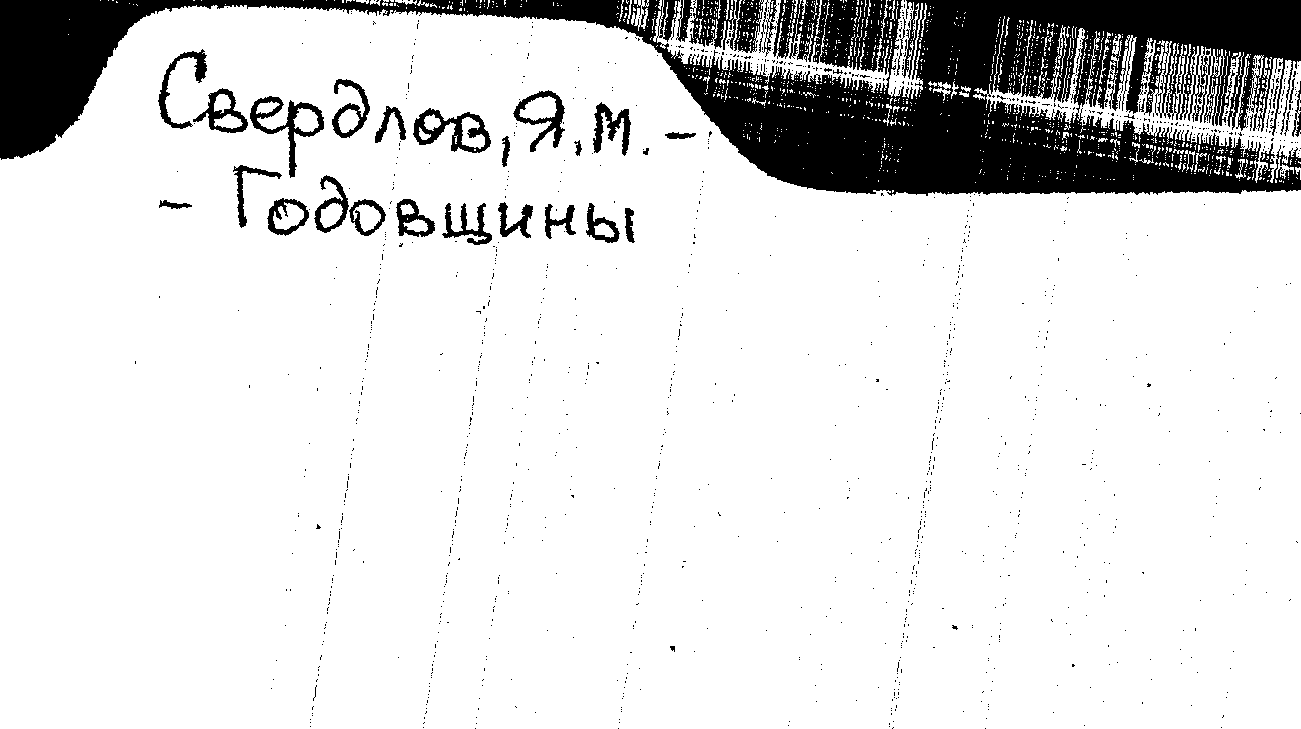 Свердлов, Я.М. -
- Годовщины